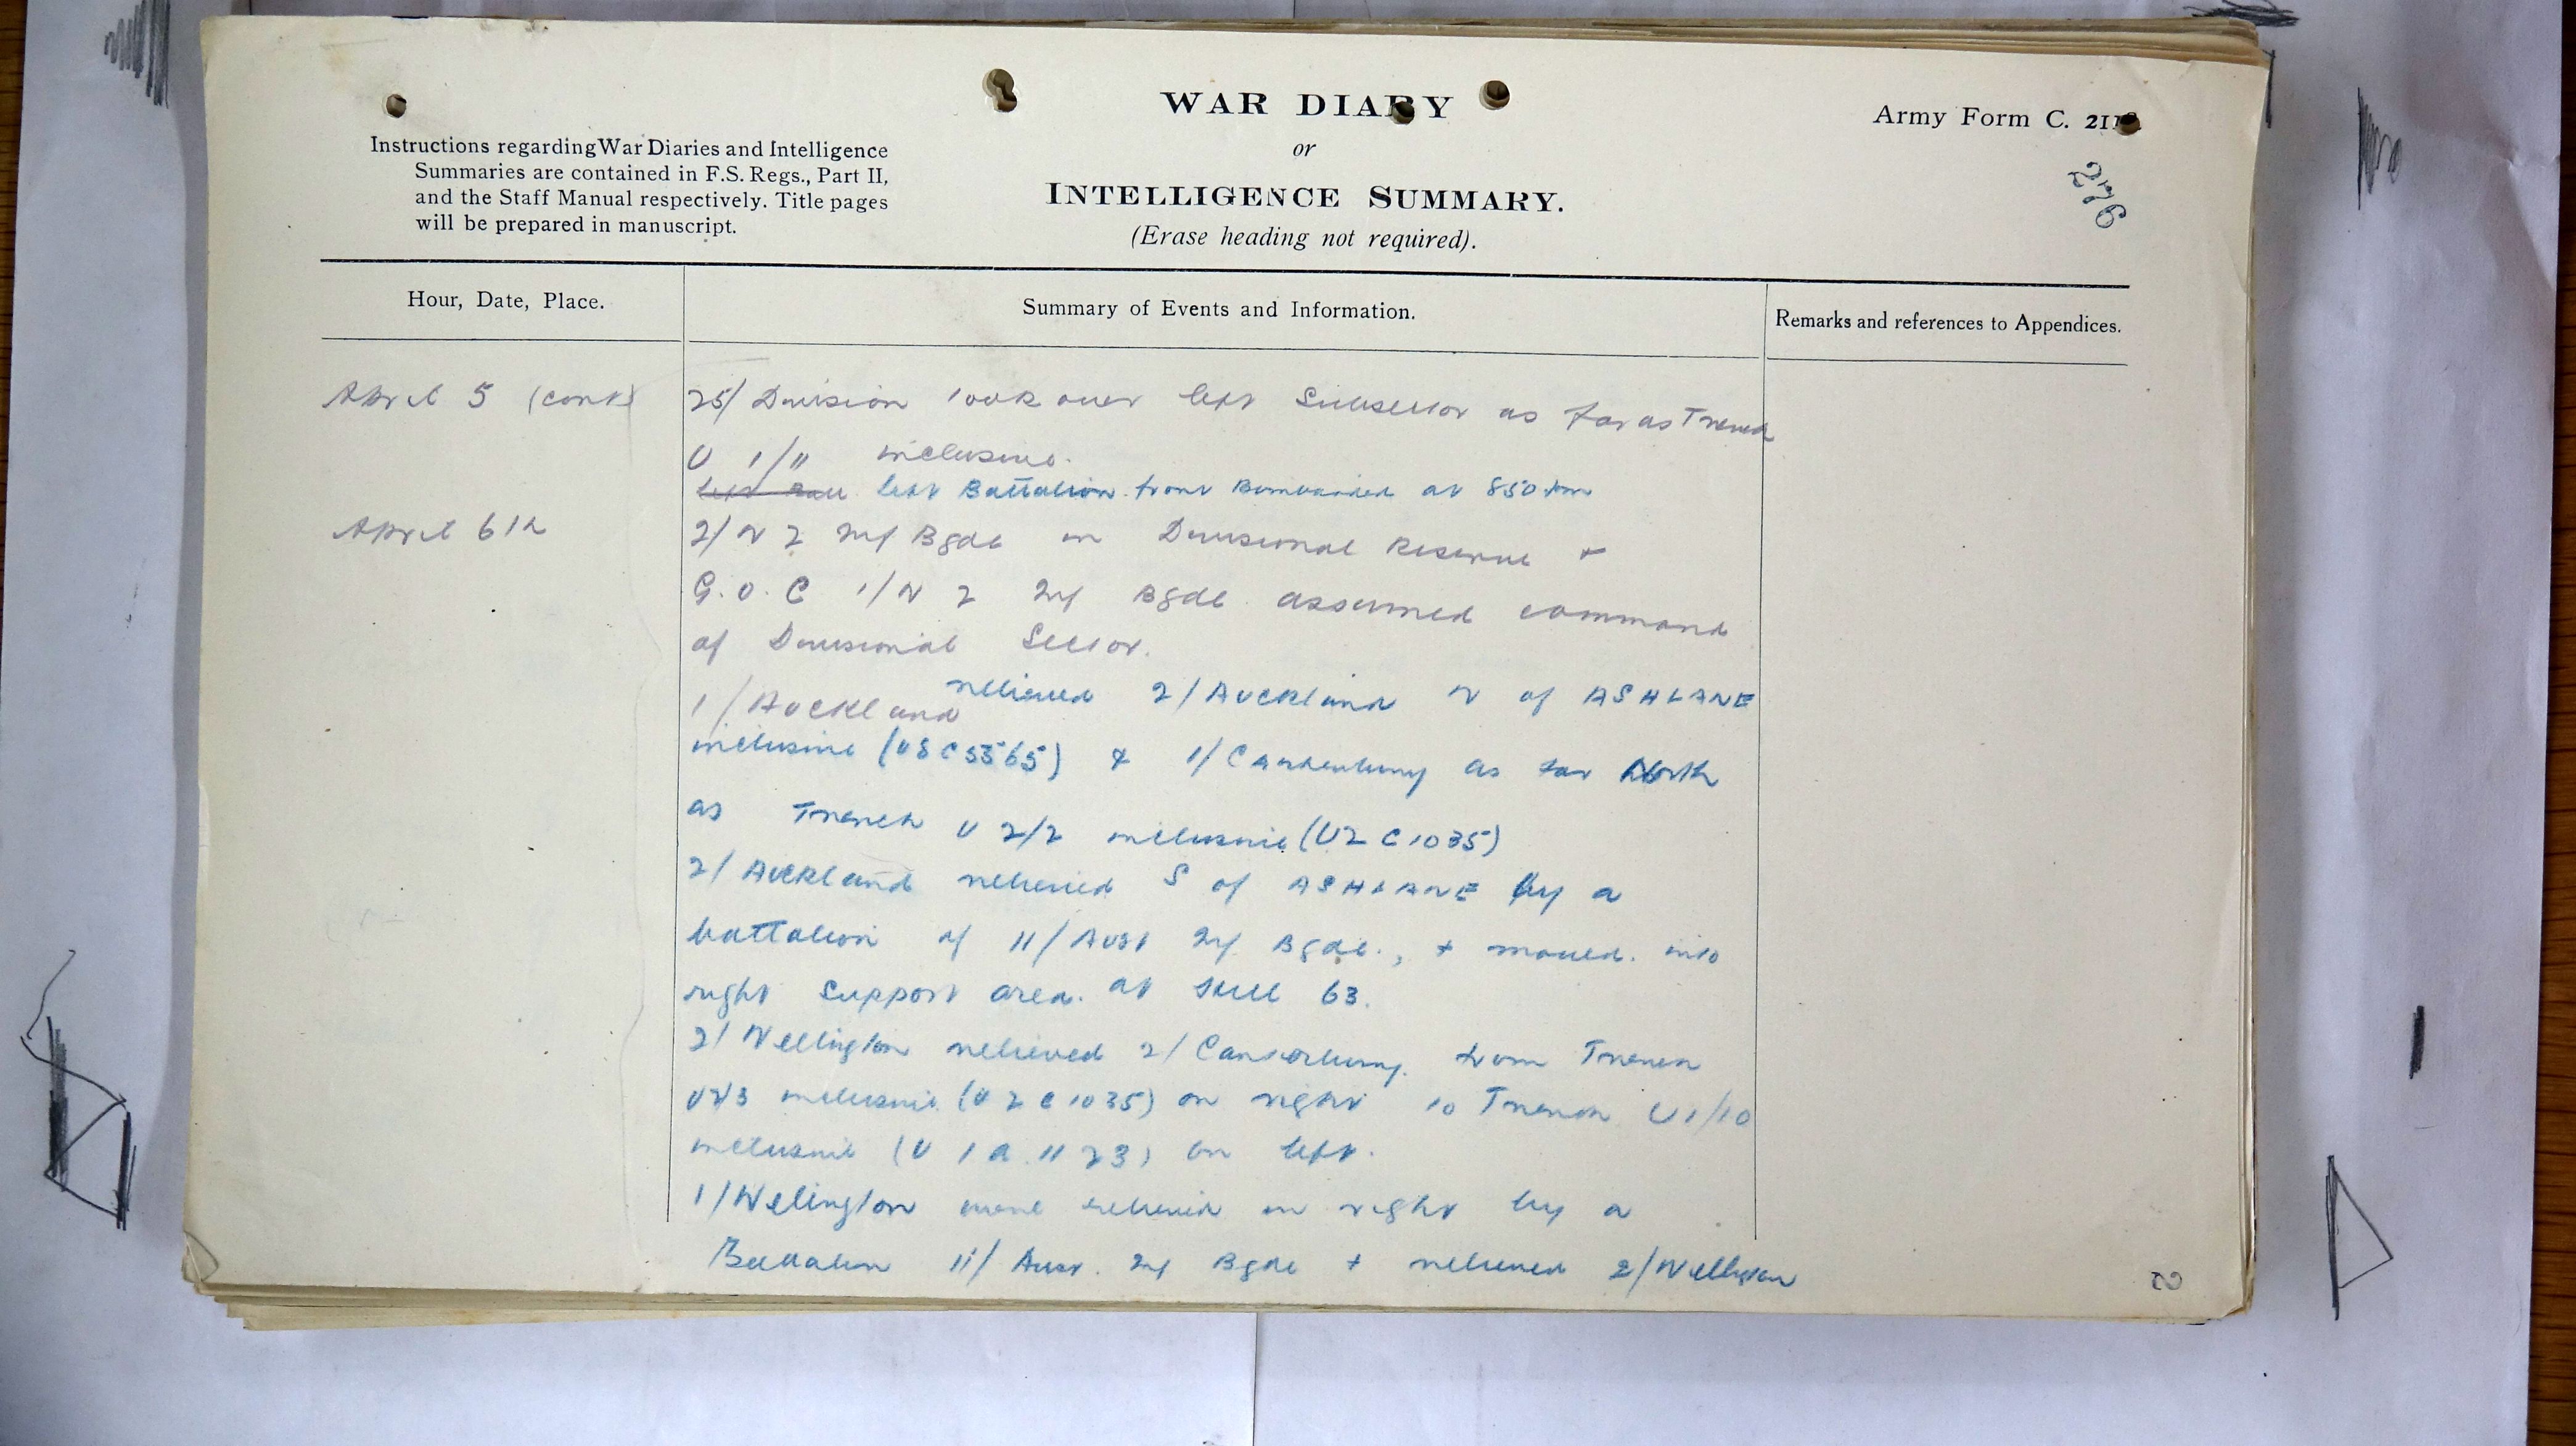 WAR DIARY
or
INTELLIGENCE SUMMARY.
(Erase heading not required).
Army Form C. 211
276
Instructions regarding War Diaries and Intelligence
Summaries are contained in F.S. Regs., Part II,
and the Staff Manual respectively. Title pages
will be prepared in manuscript.
Hour, Date, Place.
Summary of Events and Information.
Remarks and references to Appendices.
April 5 (cont)
25/ Division took over left Subsector as far as Trench
U 1/11 inclusive.
left Batt left Battalion front Bombarded at 850 pm
April 6th
2/ N Z Inf Bgde in Divisional Reserve +
G.O.C 1/ N Z Inf Bgde assumed command
of Divisional Sector.
1/Auckland relieved 2/Auckland N of ASHLANE
inclusive (U8C5565) & 1/Canterbury as far North
as Trench U 2/2 inclusive (U2 C 1035)
2/ Auckland relieved S of ASHLANE by a
battalion of 11/Aust Inf Bgde., + moved into
right support area at Hill 63.
2/ Wellington relieved 2/ Canterbury from Trench
U2/3 inclusive (U 2 C 1035) on right to Trench U 1/10
inclusive (U 1 a 11 23) on left.
1/Welington were relieved on right by a
Battalion 11/ Aust. Inf Bgde + relieved 2/Wellington